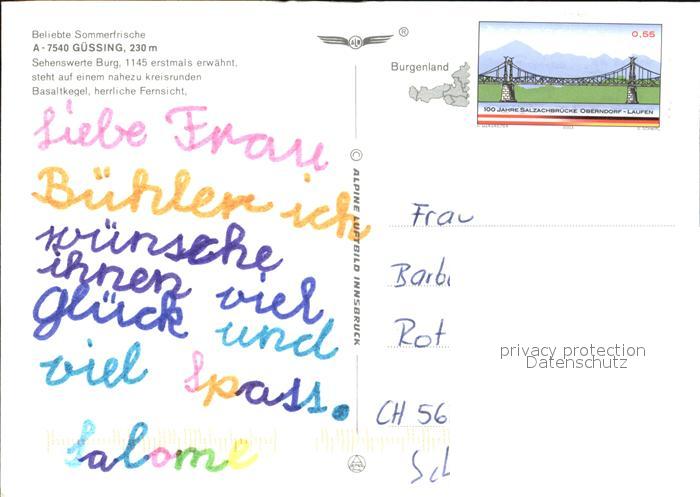 Beliebte Sommerfrische
A - 7540 GÜSSING, 230 m
Sehenswerte Burg, 1145 erstmals erwähnt,
steht auf einem nahezu kreisrunden
Basaltkegel, herrliche Fernsicht,
Liebe Frau
Bühler ich
wünsche
ihnen viel
Glück und
viel Spass.
Salome
© ALPINE LUFTBILD INNSBRUCK
®
Burgenland
0,55
100 JAHRE SALZACHBRÜCKE OBERNDORF - LAUFEN
2003
Frau
Barb
Rot
CH 56
privacy protection
Datenschutz